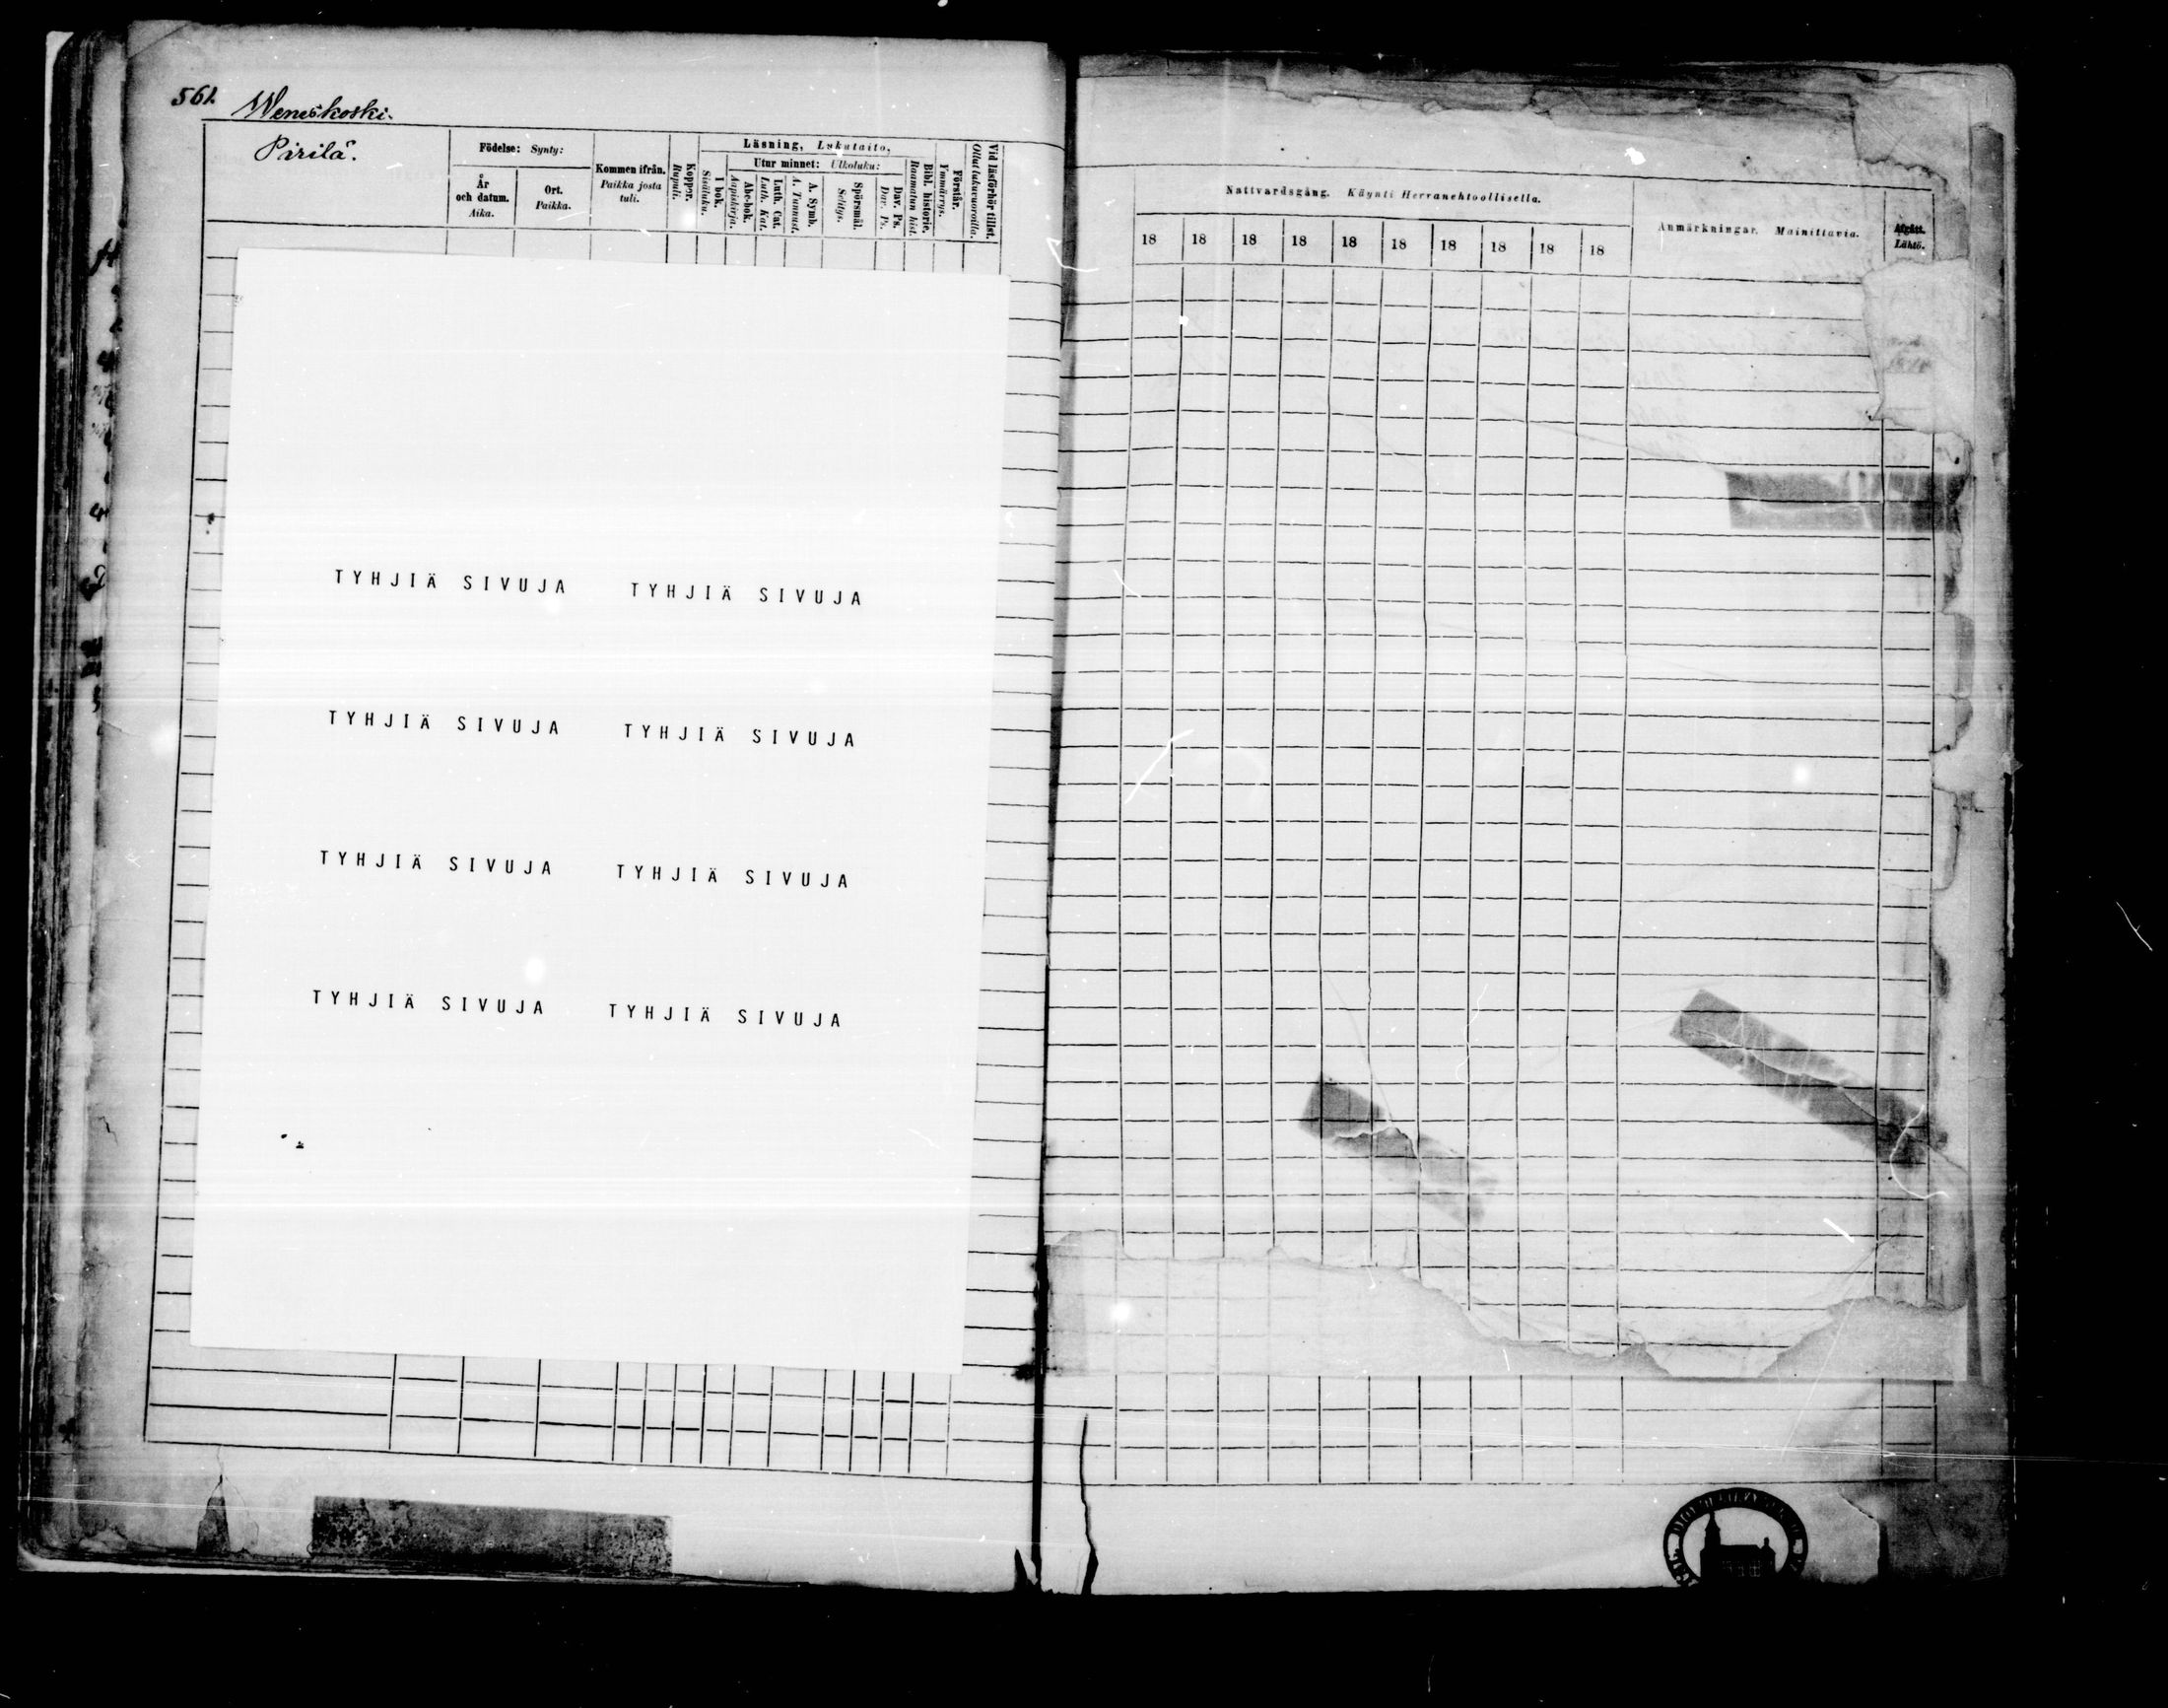 561.
Weneskoski.
Pirilä.
Födelse: Synty:
År och datum. Aika.
Ort. Paikka.
Kommen ifrån. Paikka josta tuli.
Koppor. Rupuli.
Läsning, Lukutaito,
I bok. Sisäluku.
Utur minnet: Ulkoluku:
Abc-bok. Aapiskirja.
Luth. Cat. Luth. Kat.
A. Symb. A. Tunnust.
Spörsmål. Selitys.
Dav. Ps. Dav. Ps.
Bibl. historie. Raamatun hist.
Förstår. Ymmärrys.
Vid läsförhör tillst. Ollut lukuvuoroilla.
Nattvardsgång. Käynti Herranehtoollisella.
18 18 18 18 18 18 18 18 18 18
Anmärkningar. Mainittavia.
Afgått. Lähtö.
TYHJIÄ SIVUJA TYHJIÄ SIVUJA
TYHJIÄ SIVUJA TYHJIÄ SIVUJA
TYHJIÄ SIVUJA TYHJIÄ SIVUJA
TYHJIÄ SIVUJA TYHJIÄ SIVUJA